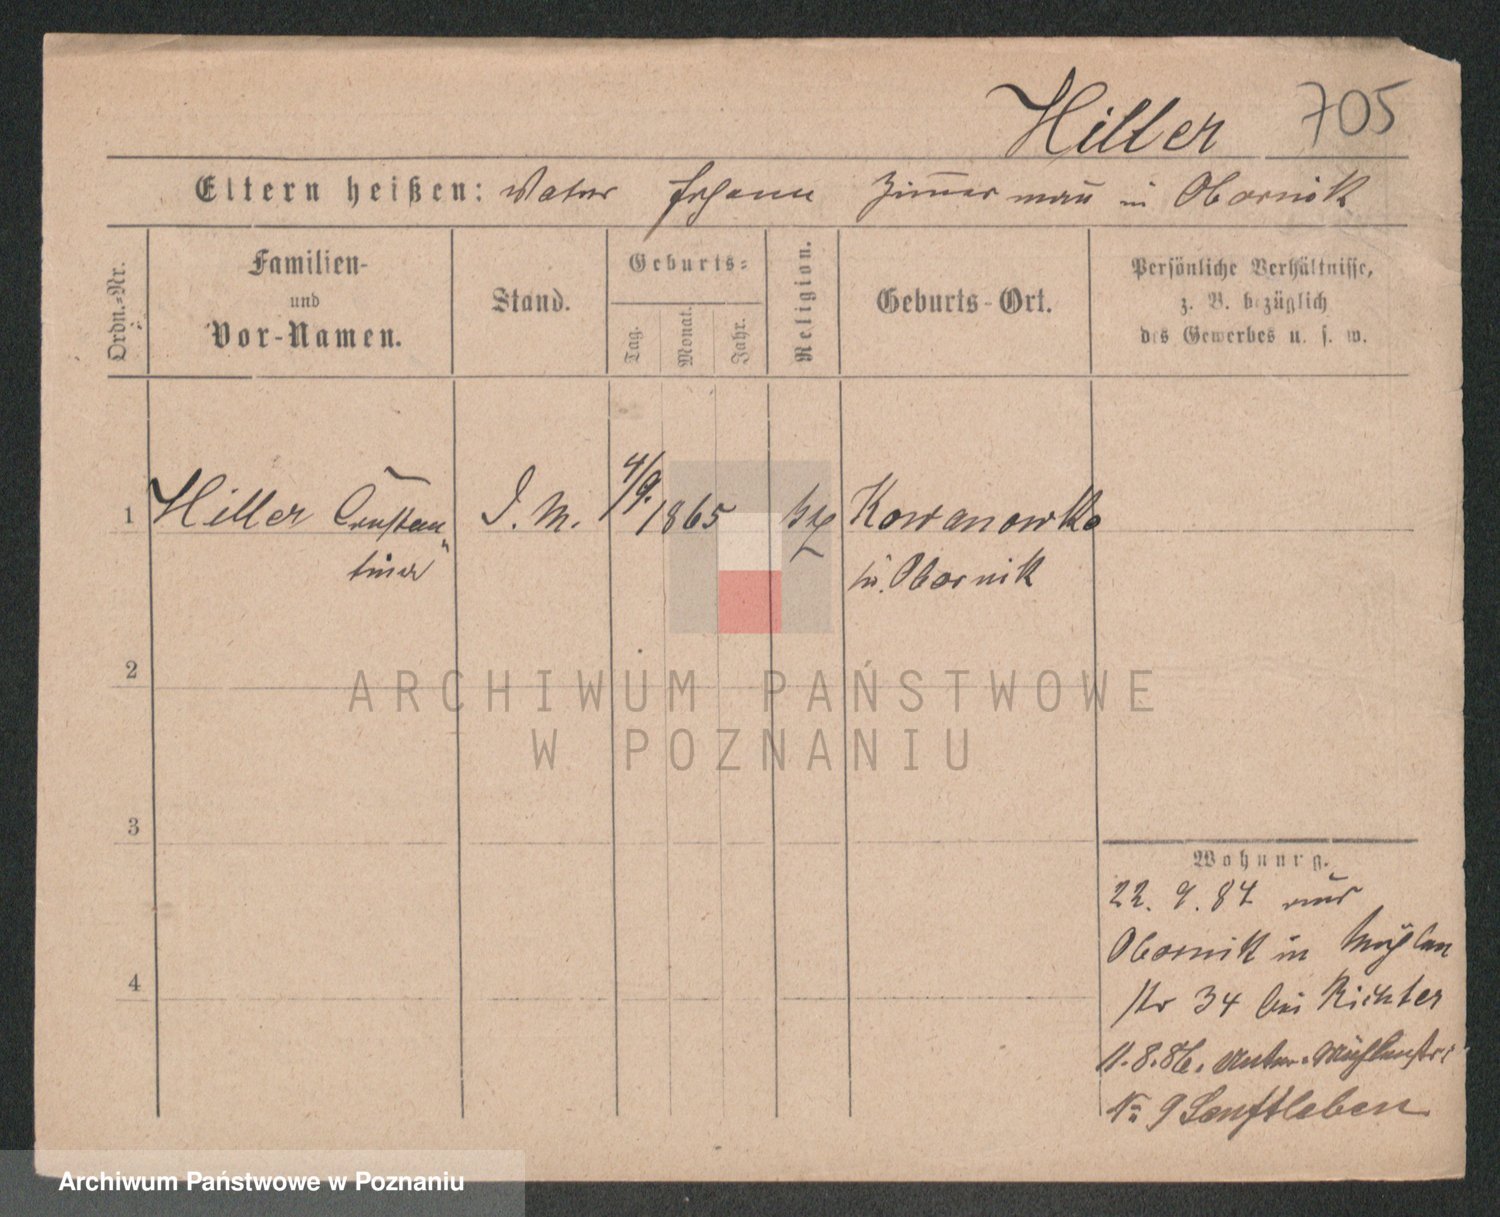 Hiller 705
Eltern heißen: Vater Johann Zimmermann in Obornik
Ordn.-Nr.
Familien-
und
Vor-Namen.
Stand.
Geburts-
Tag.
Monat.
Jahr.
Religion.
Geburts-Ort.
Persönliche Verhältnisse,
z. B. bezüglich
des Gewerbes u. s. w.
1 Hiller Constan- D. M. 4/9. 1865 Kowanowko
tine in Obornik
2
ARCHIWUM PAŃSTWOWE
W POZNANIU
3
4
Wohnung.
22. 9. 84 aus
Obornik in Mühlen
str 34 bei Richter
11.8.86. Unter-Mühlenstr:
No 9 Senftleben
Archiwum Państwowe w Poznaniu